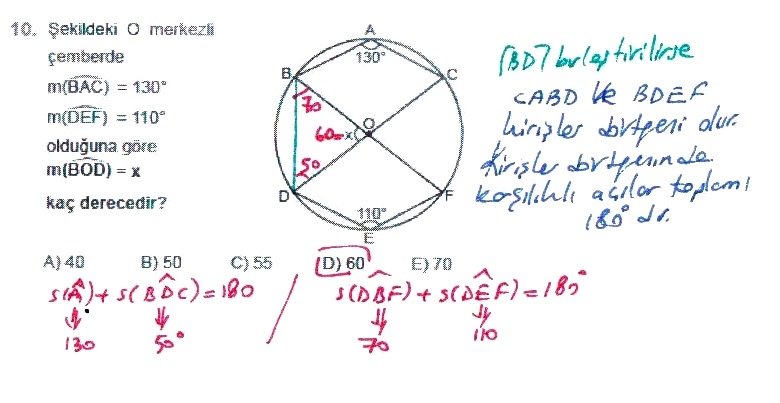 10. Şekildeki O merkezli
çemberde
m(BAC) = 130°
m(DEF) = 110°
olduğuna göre
m(BOD) = x
kaç derecedir?
A
130°
B
C
70
O
60=x
50
D
F
110°
E
[BD] birleştirilirse
CABD ve BDEF
kirişler dörtgeni olur.
Kirişler dörtgeninde
karşılıklı açılar toplamı
180° dr.
A) 40 B) 50 C) 55 D) 60 E) 70
s(A)+s(BDC)=180 / s(DBF)+s(DEF)=180°
130 50° 70 110